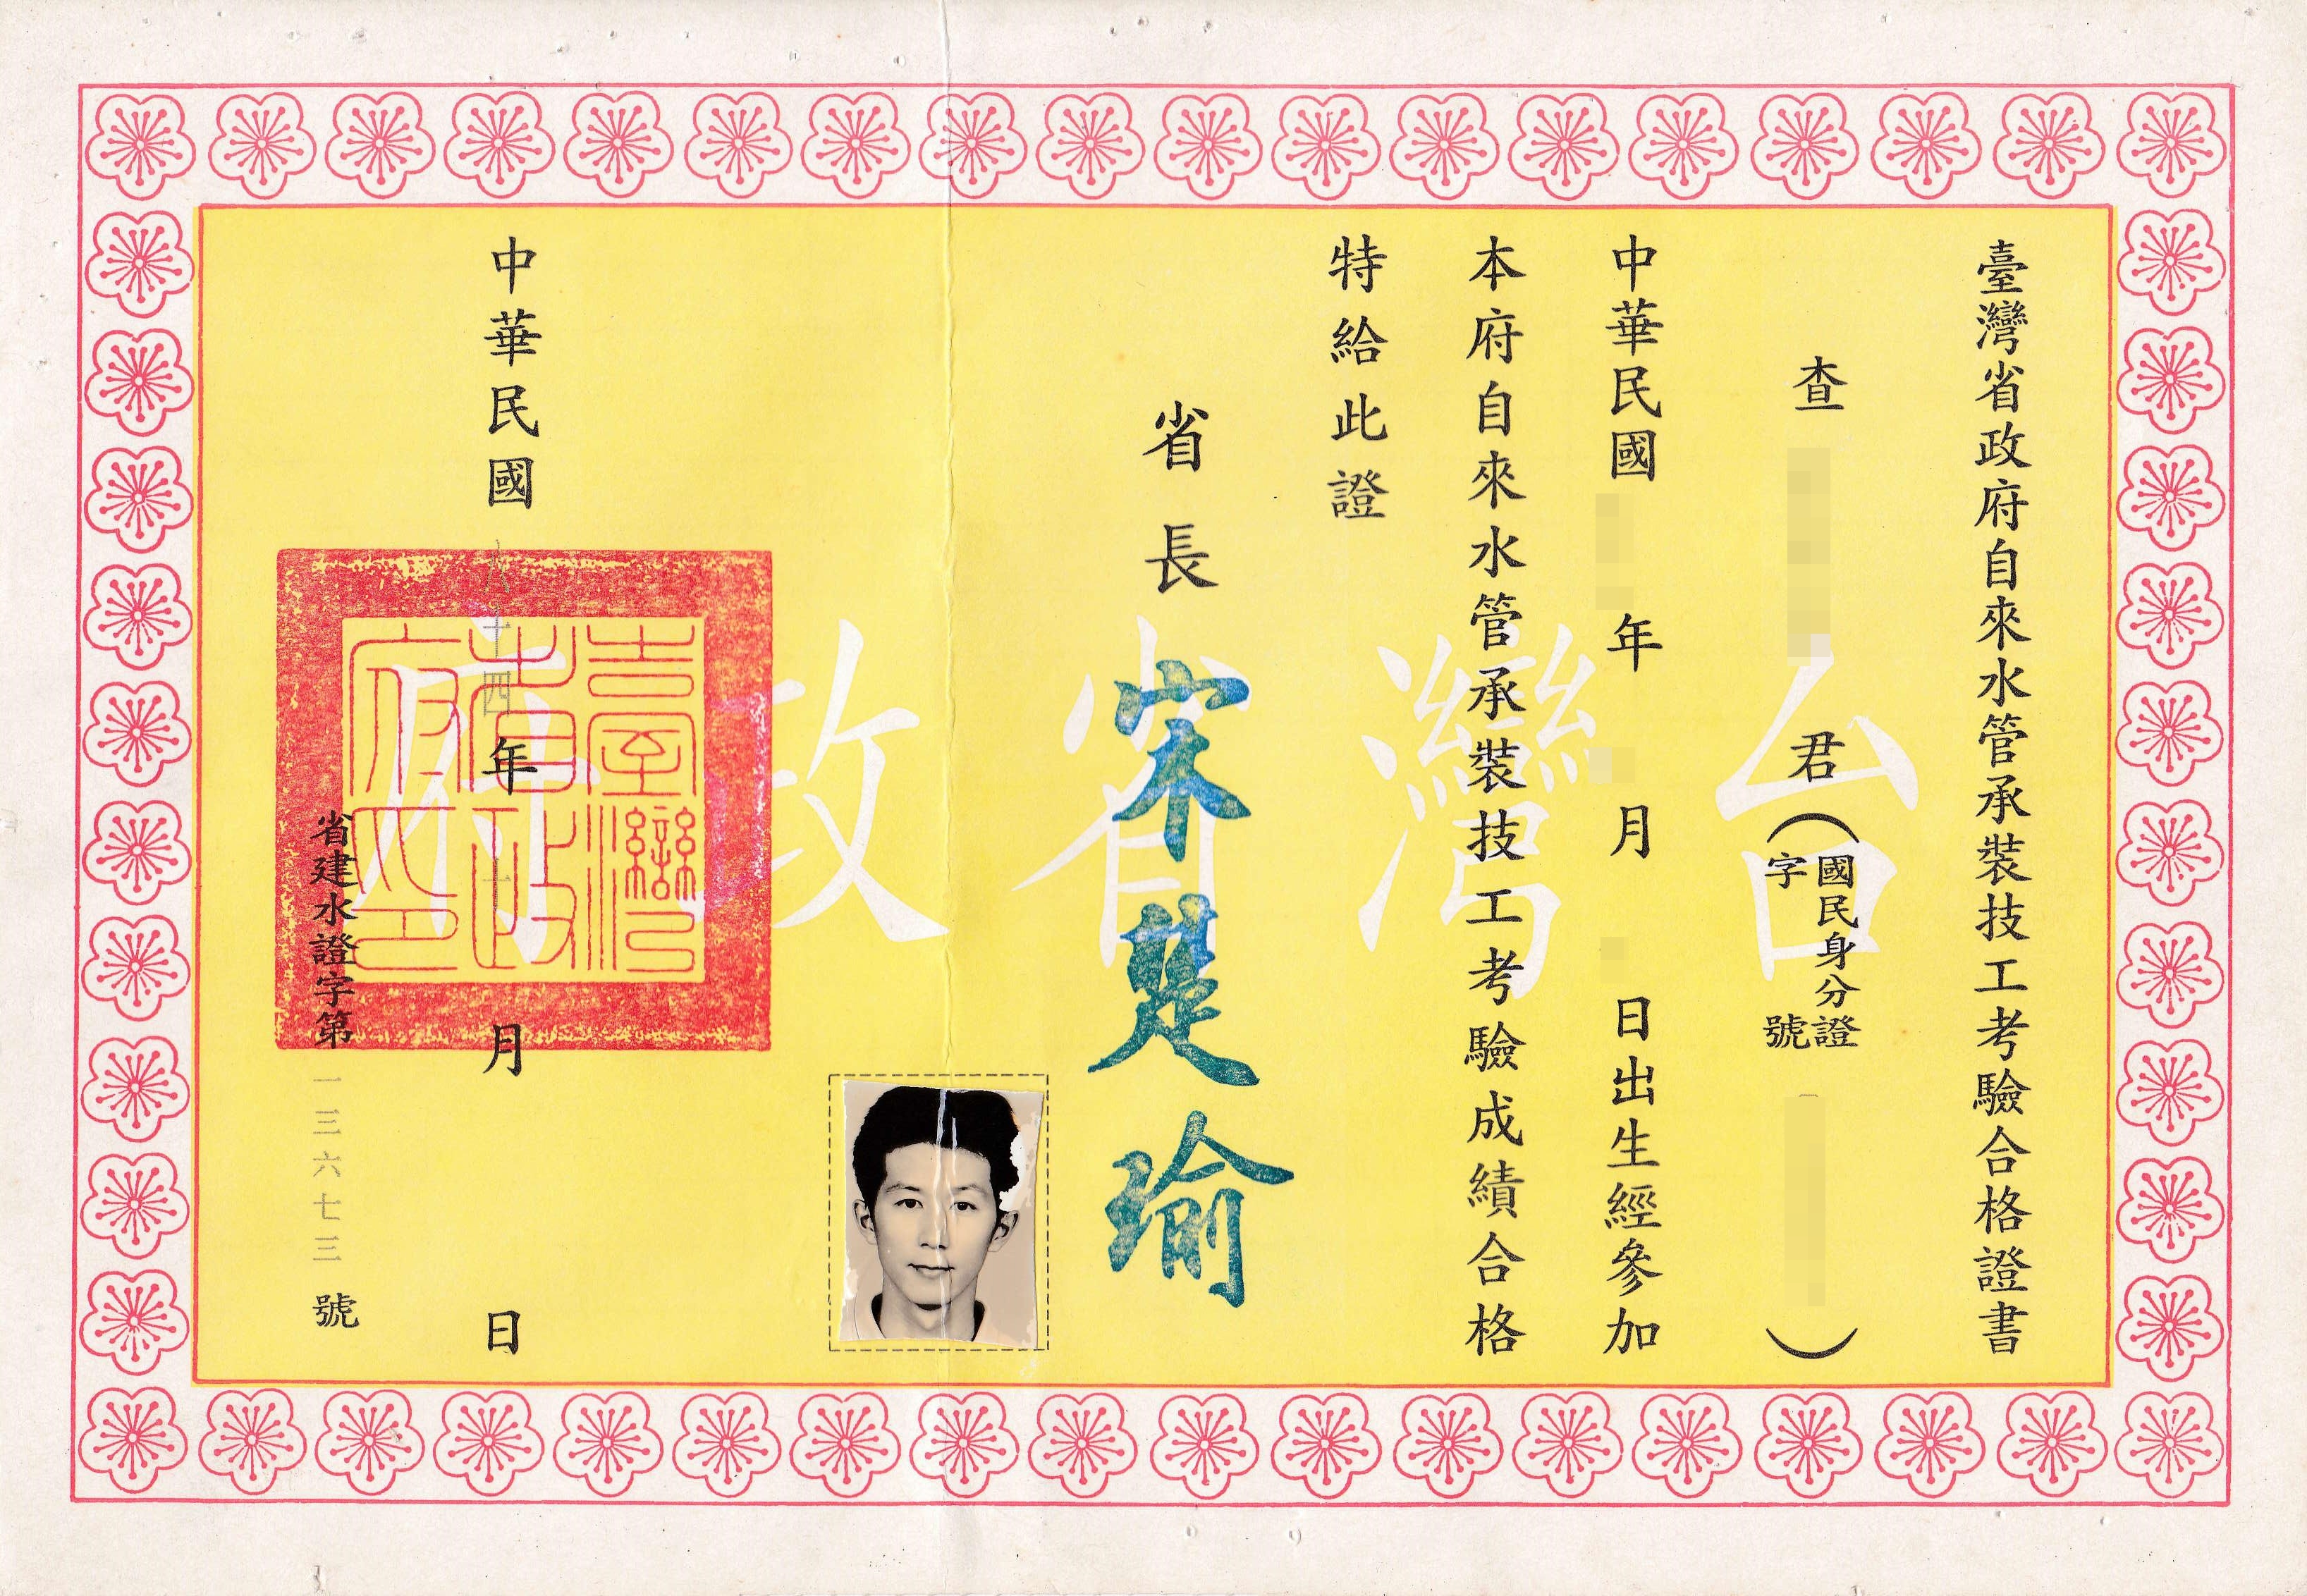 臺灣省政府自來水管承裝技工考驗合格證書
查 君(國民身分證 字 號 )
中華民國 年 月 日出生經參加
本府自來水管承裝技工考驗成績合格
特給此證
省長 宋楚瑜
中華民國 八十四 年 十 月 日
省建水證字第 一三六七三 號
台灣省政府
臺灣省政府印